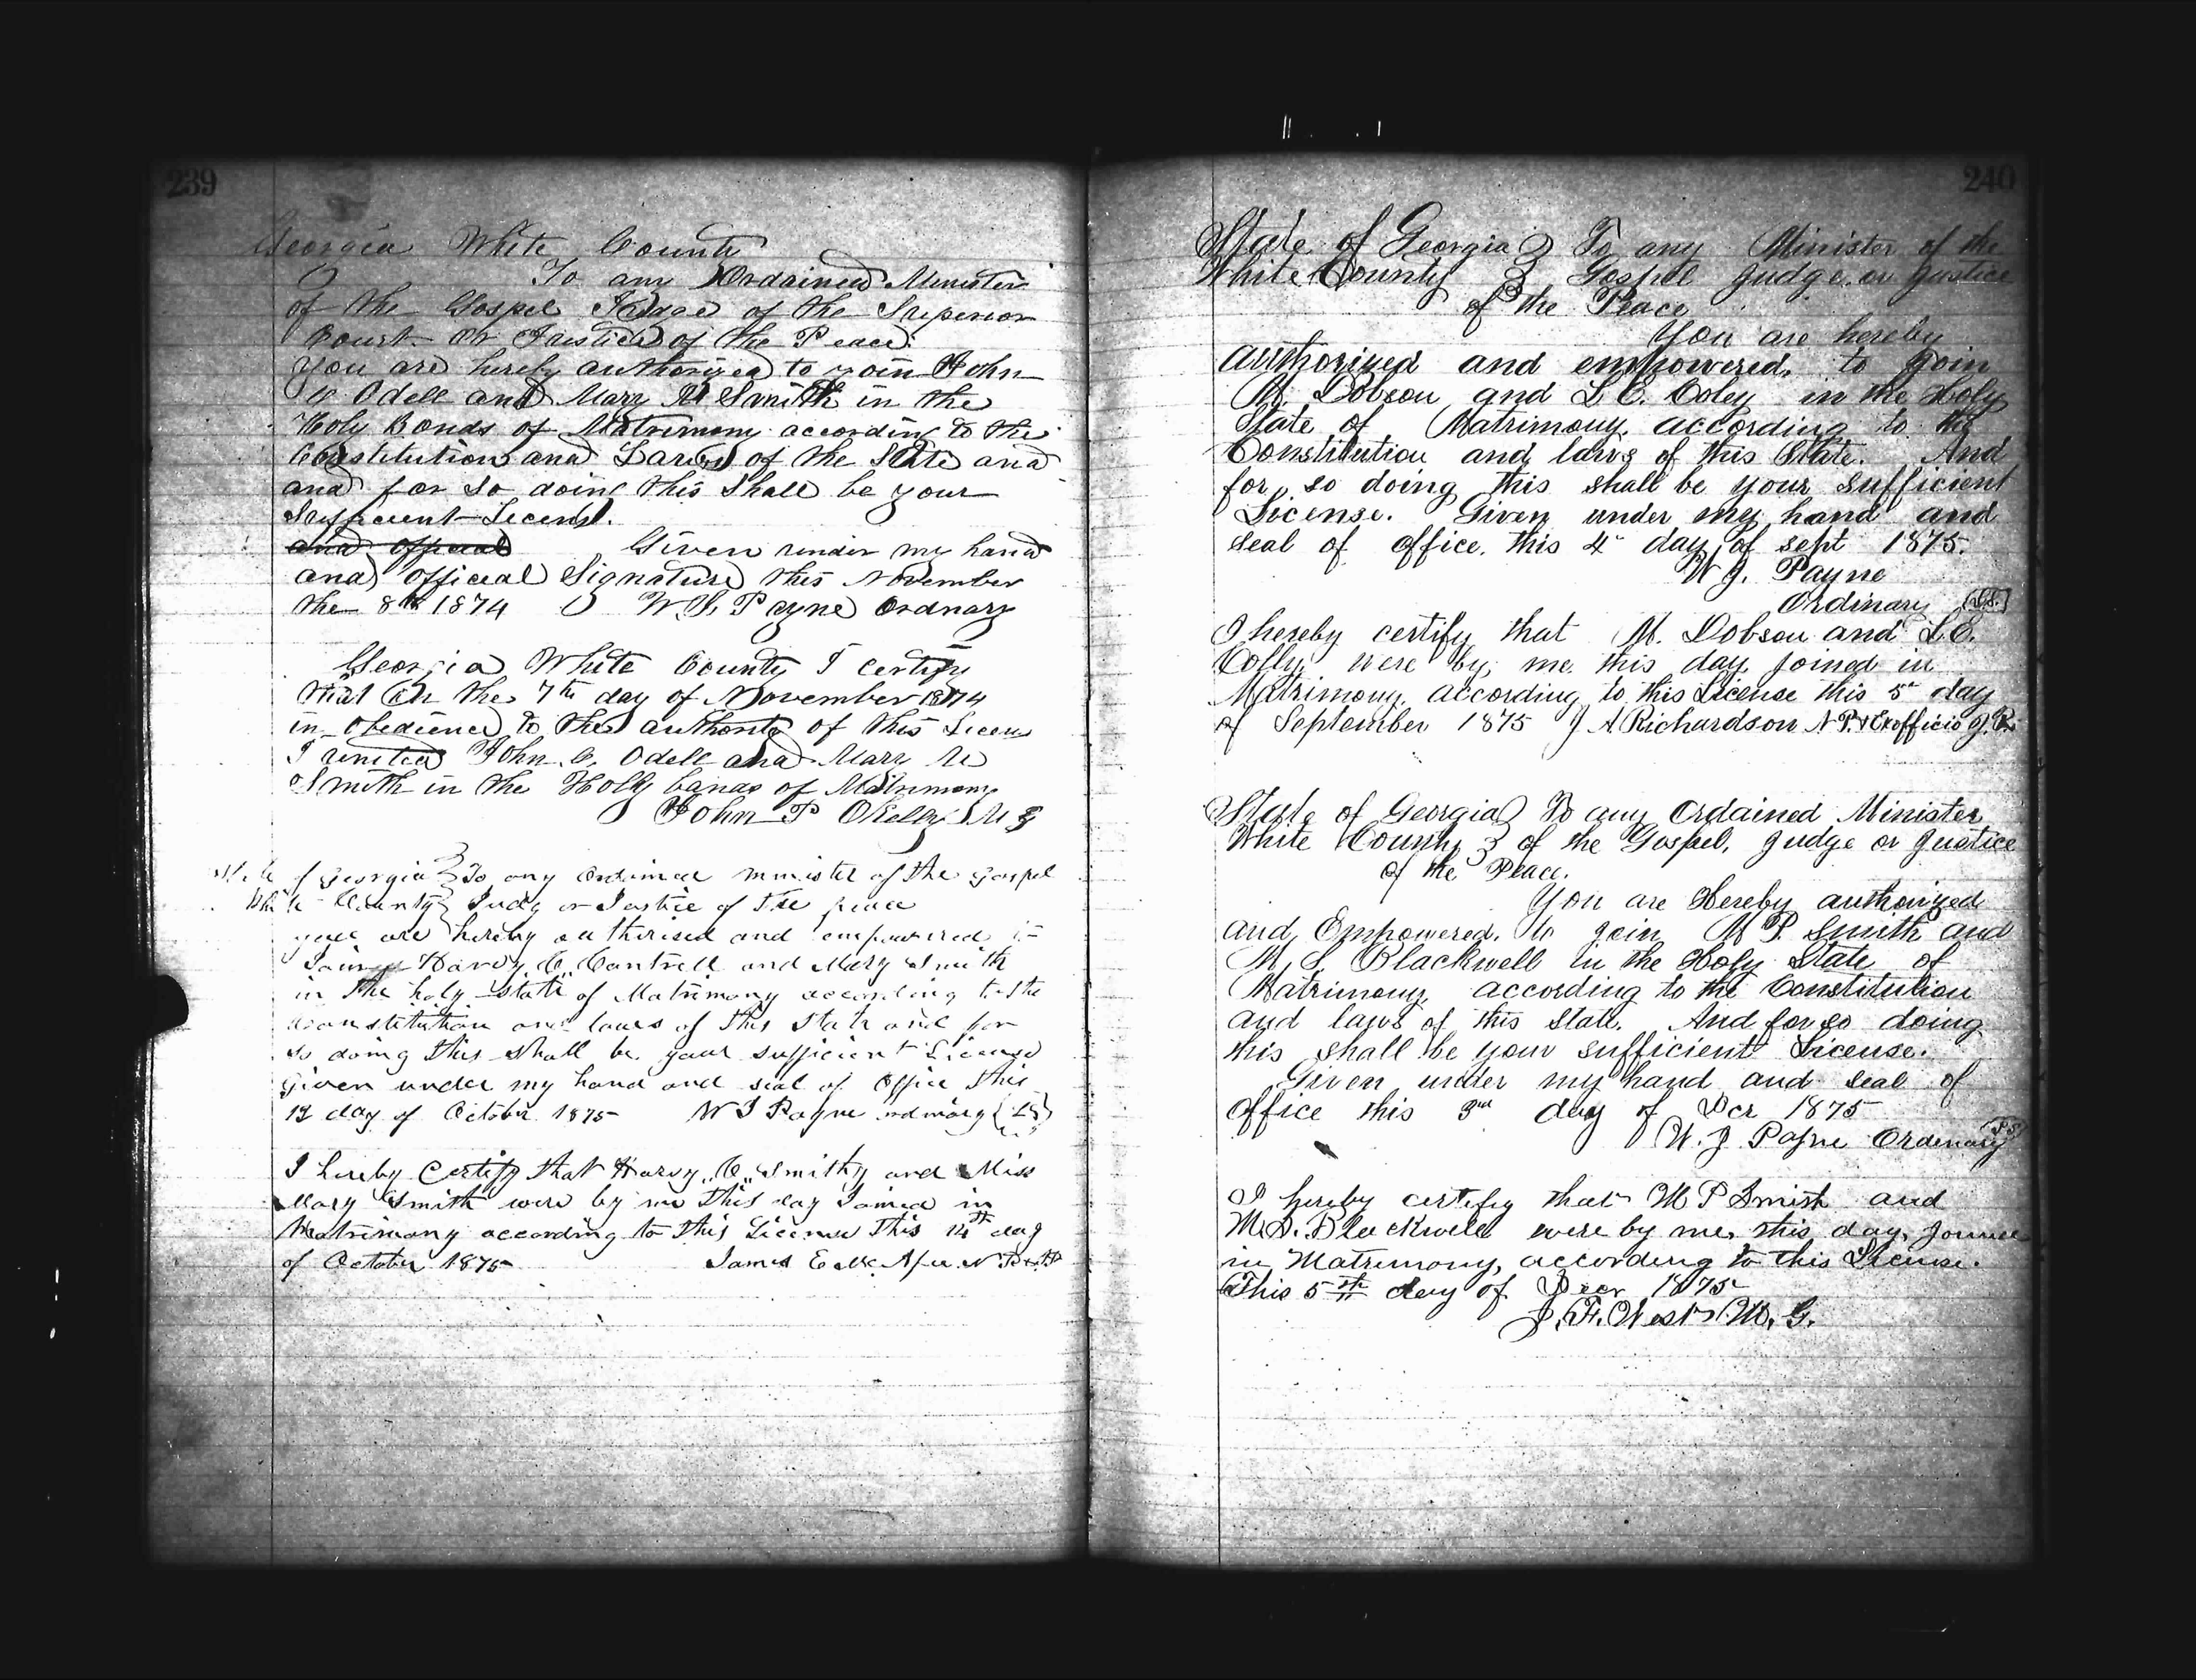 239
Georgia White County
To any Ordained Minister
of the Gospel Judge of the Superior
Court or Justice of the Peace.
you are hereby authorized to join John
C Odell and Mary M Smith in the
Holy Bonds of Matrimony according to the
Constitution and Laws of the State and
and for so doing this shall be your
Sufficient License.
and official Given under my hand
and official Signature this November
the 8th 1874 W J Payne Ordnary
Georgia White County I certify
that on the 7th day of November 1874
in obedience to the authority of this Licens
I united John C. Odell and Mary M
Smith in the Holy bands of Matrimony
John P OKelly M G
State of Georgia To any Ordained minister of the gospel
White County Judg or Justice of the peace
you are hereby authorised and empowered to
Joine Harvy C. Cantrell and Mary Smith
in the holy state of Matrimony according to the
constitution and laws of this State and for
so doing this shall be your sufficient License
given under my hand and seal of office this
12 day of October 1875 W J Payne ordinary (LS)
I hereby Certify that Harvy C. Smithy and Miss
Mary Smith were by me this day Joined in
Matrimony according to this License This 14th day
of October 1875 James E N P
240
State of Georgia To any Minister of the
White County Gospel Judge or Justice
of the Peace
You are hereby
authorized and empowered, to join
M. Dobson and L E. Coley in the Holy
State of Matrimony, according to the
Constitution and laws of this State. And
for so doing this shall be your sufficient
License. Given under my hand and
seal of office, this 4" day of sept 1875.
W J. Payne
Ordinary (LS.)
I hereby certify that M. Dobson and L E.
Colly, were by, me this day, joined in
Matrimony, according to this License this 5" day
of September 1875 J A. Richardson N P. & Exofficio J. P.
State of Georgia To any Ordained Minister
White County of the Gospel, Judge or Justice
of the Peace.
You are Hereby authorized
and, Empowered. to join M P. Smith and
M. S. Blackwell in the Holy State of
Matrimony, according to the Constitution
and laws of this State. And for so doing
this shall be your sufficient License.
Given under my hand and seal of
office this 3rd day of Dcr 1875
W. J Payne Ordinary (LS)
I hereby certifiy that M P Smith and
M. S. Blackwell were by me, this day, Joined
in Matrimony, according to this License.
This 5th day of Decr 1875
J. F. West M. G.